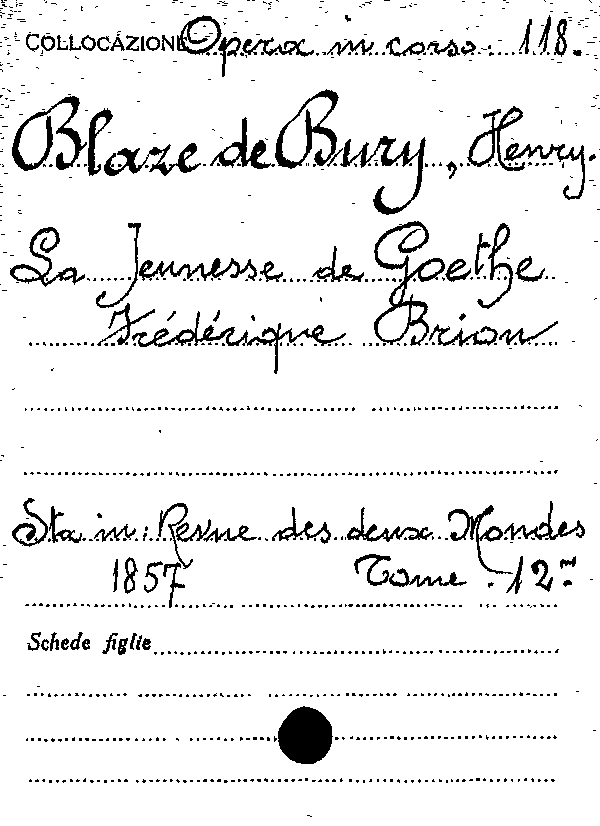 COLLOCAZIONE Opera in corso. 118.
Blaze de Bury, Henry.
La Jeunesse de Goethe
Frédérique Brion
Sta in: Revue des deux Mondes
1857 Tome 12.me
Schede figlie